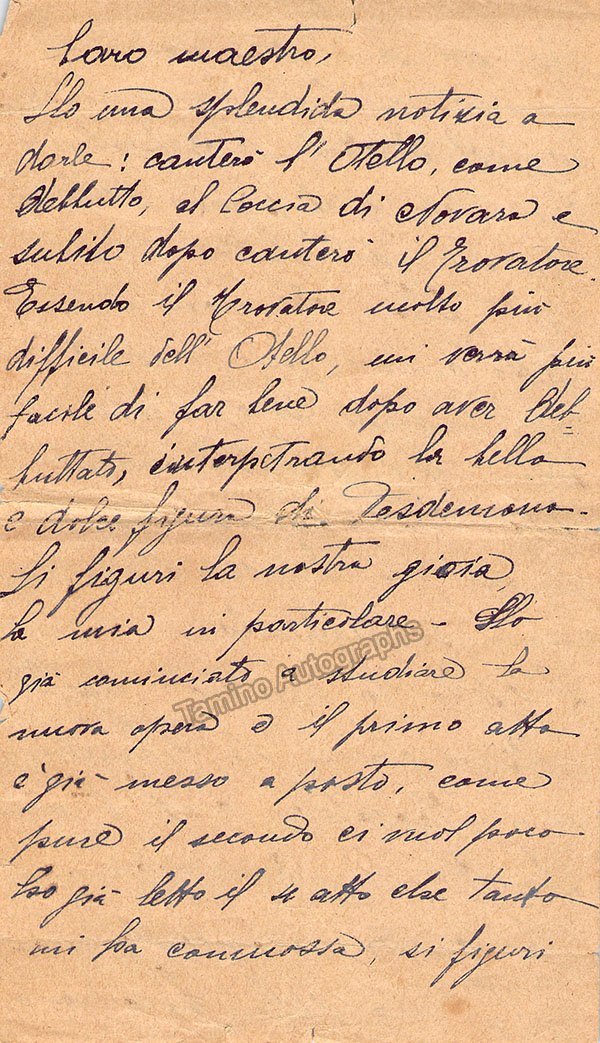 Caro maestro,
Ho una splendida notizia a
darle: canterò l'Otello, come
debbutto, al Coccia di Novara e
subito dopo canterò il Trovatore.
Essendo il Trovatore molto più
difficile dell'Otello, mi verrà più
facile di far bene dopo aver deb=
buttato, interpetrando la bella
e dolce figura di Desdemona.
Si figuri la nostra gioia,
la mia in particolare - Ho
già cominciato a studiare la
nuova opera e il primo atto
è già messo a posto, come
pure il secondo ci vuol poco.
Ho già letto il 4 atto che tanto
mi ha commossa, si figuri
Tamino Autographs